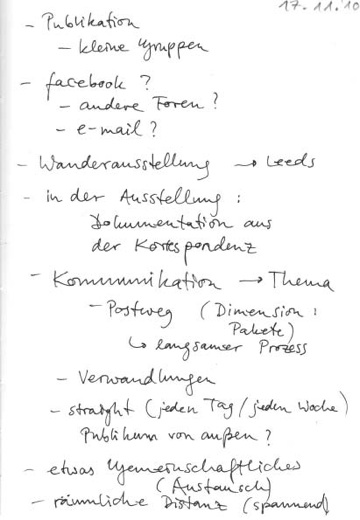 17.11.'10
- Publikation
- kleine Gruppen
- facebook ?
- andere Foren ?
- e-mail ?
- Wanderausstellung → Leeds
- in der Ausstellung :
Dokumentation aus
der Korrespondenz
- Kommunikation → Thema
- Postweg (Dimension :
Pakete)
↳ langsamer Prozess
- Verwandlungen
- straight (jeden Tag / jeden Woche)
Publikum von außen ?
- etwas Gemeinschaftliches
(Austausch)
- räumliche Distanz (spannend)